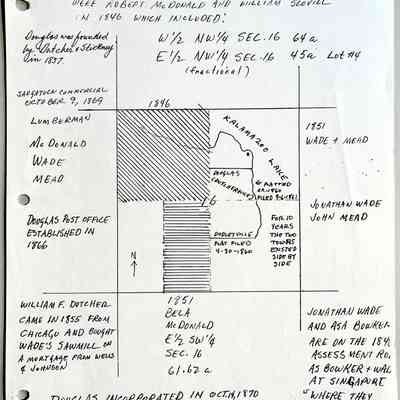 WERE ROBERT McDONALD AND WILLIAM SCOVILL
IN 1846 WHICH INCLUDED:
Douglas was founded
by Dutcher & Stickney
in 1857.
W 1/2 NW 1/4 SEC. 16 64 a
E 1/2 NW 1/4 SEC. 16 45 a LOT #4
(fractional)
SAUGATUCK COMMERCIAL
OCTOBER 9, 1869
1846
LUMBERMAN
McDONALD
WADE
MEAD
KALAMAZOO LAKE
1851
WADE + MEAD
DOUGLAS
PLATTED
FILED
16
JONATHAN WADE
JOHN MEAD
DOUGLAS POST OFFICE
ESTABLISHED IN
1866
N
DUDLEYVILLE
PLAT FILED
4-30-1860
FOR 10
YEARS
THE TWO
TOWNS
EXISTED
SIDE BY
SIDE
WILLIAM F. DUTCHER
CAME IN 1855 FROM
CHICAGO AND BOUGHT
WADE'S SAWMILL ON
A MORTGAGE, FROM WELLS
& JOHNSON
1851
BELA
McDONALD
E 1/2 SW 1/4
SEC. 16
61.62 a
JONATHAN WADE
AND ASA BOWKER
ARE ON THE 184
ASSESSMENT RO
AS BOWKER + WA
AT SINGAPORE
"WHERE THEY
DOUGLAS INCORPORATED IN OCT. 14, 1870